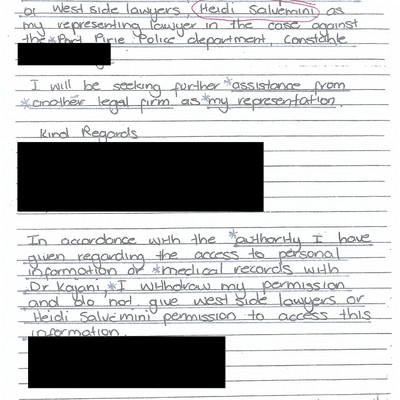 or West side lawyers, Heidi Salvemini as
my representing lawyer in the case against
the *Port Pirie Police department, Constable
I will be seeking further *assistance from
*another legal firm as *my representation.
Kind Regards
In accordance with the *authority I have
given regarding the access to personal
information or *medical records with
Dr Kajani, *I withdraw my permission
and do not give West side lawyers or
Heidi Salvemini permission to access this
information.